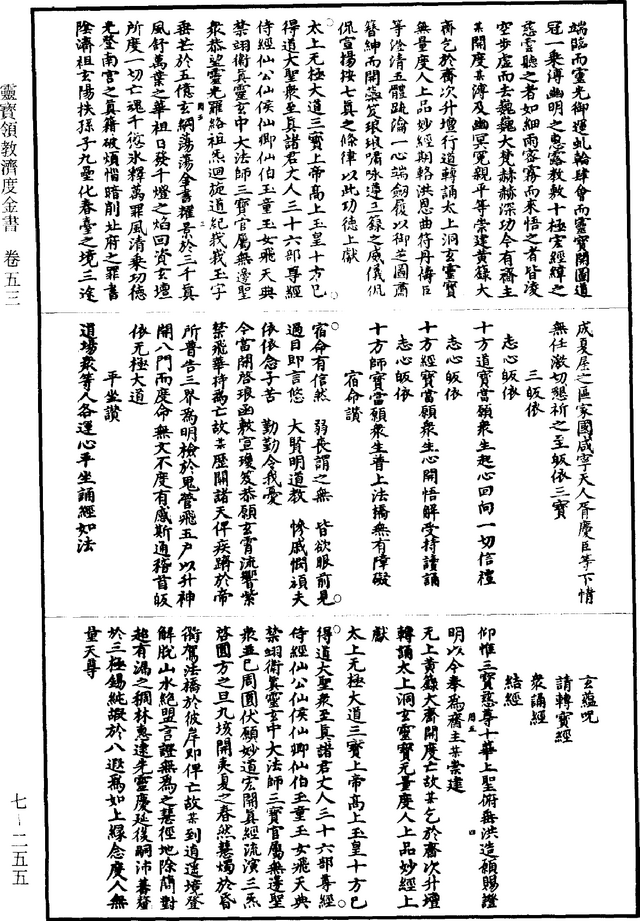 靈寶領教濟度金書　卷五三
七－二五五
端臨而靈光御運虬輪肆會而靈寶開圖道
冠一乘溥幽明之惠露教敷十極宏經緯之
慈雲聽之者如細雨密霧而來悟之者皆凌
空步虛而去巍巍大梵赫赫深功今有齋主
某開度某溥及幽冥冤親平等崇建黃籙大
齋乞於齋次升壇行道轉誦太上洞玄靈寶
無量度人上品妙經期賂洪恩曲符丹禱臣
等澄清五體疏瀹一心端劒履以御芝圖肅
簪紳而開蘂笈琅璈嘯詠遵三籙之威儀仉
侃宣揚按七真之條律以此功德上獻
太上無極大道三寶上帝高上玉皇十方已
得道大聖衆至真諸君丈人三十六部尊經
侍經仙公仙侯仙卿仙伯玉童玉女飛天典
禁翊衛真靈玄中大法師三寶官屬無邊聖
衆恭望靈光羅絡祖炁迴旋道紀我我玉字
垂芒於五億玄綱蕩蕩金書耀景於三千真
風舒萬葉之華祖日發千燈之焰回資玄壇
所度一切亡魂千愆氷釋萬罪風清乘功德
光登南宮之真籍破煩惱暗削北府之罪書
陰濟祖玄陽扶孫子九壘化春臺之境三途
成夏屋之區家國咸寧天人胥慶臣等下情
無任激切懇祈之至皈依三寶
三皈依
志心皈依
十方道寶當願衆生起心回向一切信禮
志心皈依
十方經寶當願衆生心開悟解受持讀誦
志心皈依
十方師寶當願衆生普上法橋無有障礙
宿命讚
宿命有信然　弱喪謂之無　皆欲眼前見
過目即言悠　大賢明道教　慘戚憫頑夫
依依念子苦　勤勤令我憂
今當開啓琅函敷宣瓊笈恭願玄霄流響紫
禁飛華特為亡故某歷關諸天俾疾躋於帝
所普告三界為明檢於鬼營飛五戶以升神
開八門而度命無文不度有感斯通稽首皈
依無極大道
平坐讚
道場衆等人各運心平坐誦經如法
玄蘊呪
請轉寶經
衆誦經
結經
仰惟三寶慈尊十華上聖俯垂洪造願賜證
明以今奉為齋主某崇建
無上黃籙大齋開度亡故某乞於齋次升壇
轉誦太上洞玄靈寶無量度人上品妙經上
獻
太上無極大道三寶上帝高上玉皇十方已
得道大聖衆至真諸君丈人三十六部尊經
侍經仙公仙侯仙卿仙伯玉童玉女飛天典
禁翊衛真靈玄中大法師三寶官屬無邊聖
衆並已周圓伏願妙道宏開真經流演三炁
啓圓方之旦九垓開夷夏之春然慧燭於昏
衢駕法橋於彼岸即俾亡故某到逍遙境登
解脫山水絕盟言證無為之慧徑地除簡對
超有漏之稠林惠逮先靈慶延後嗣沛蕃釐
於三極錫純嘏於八遐為如上緣念度人無
量天尊